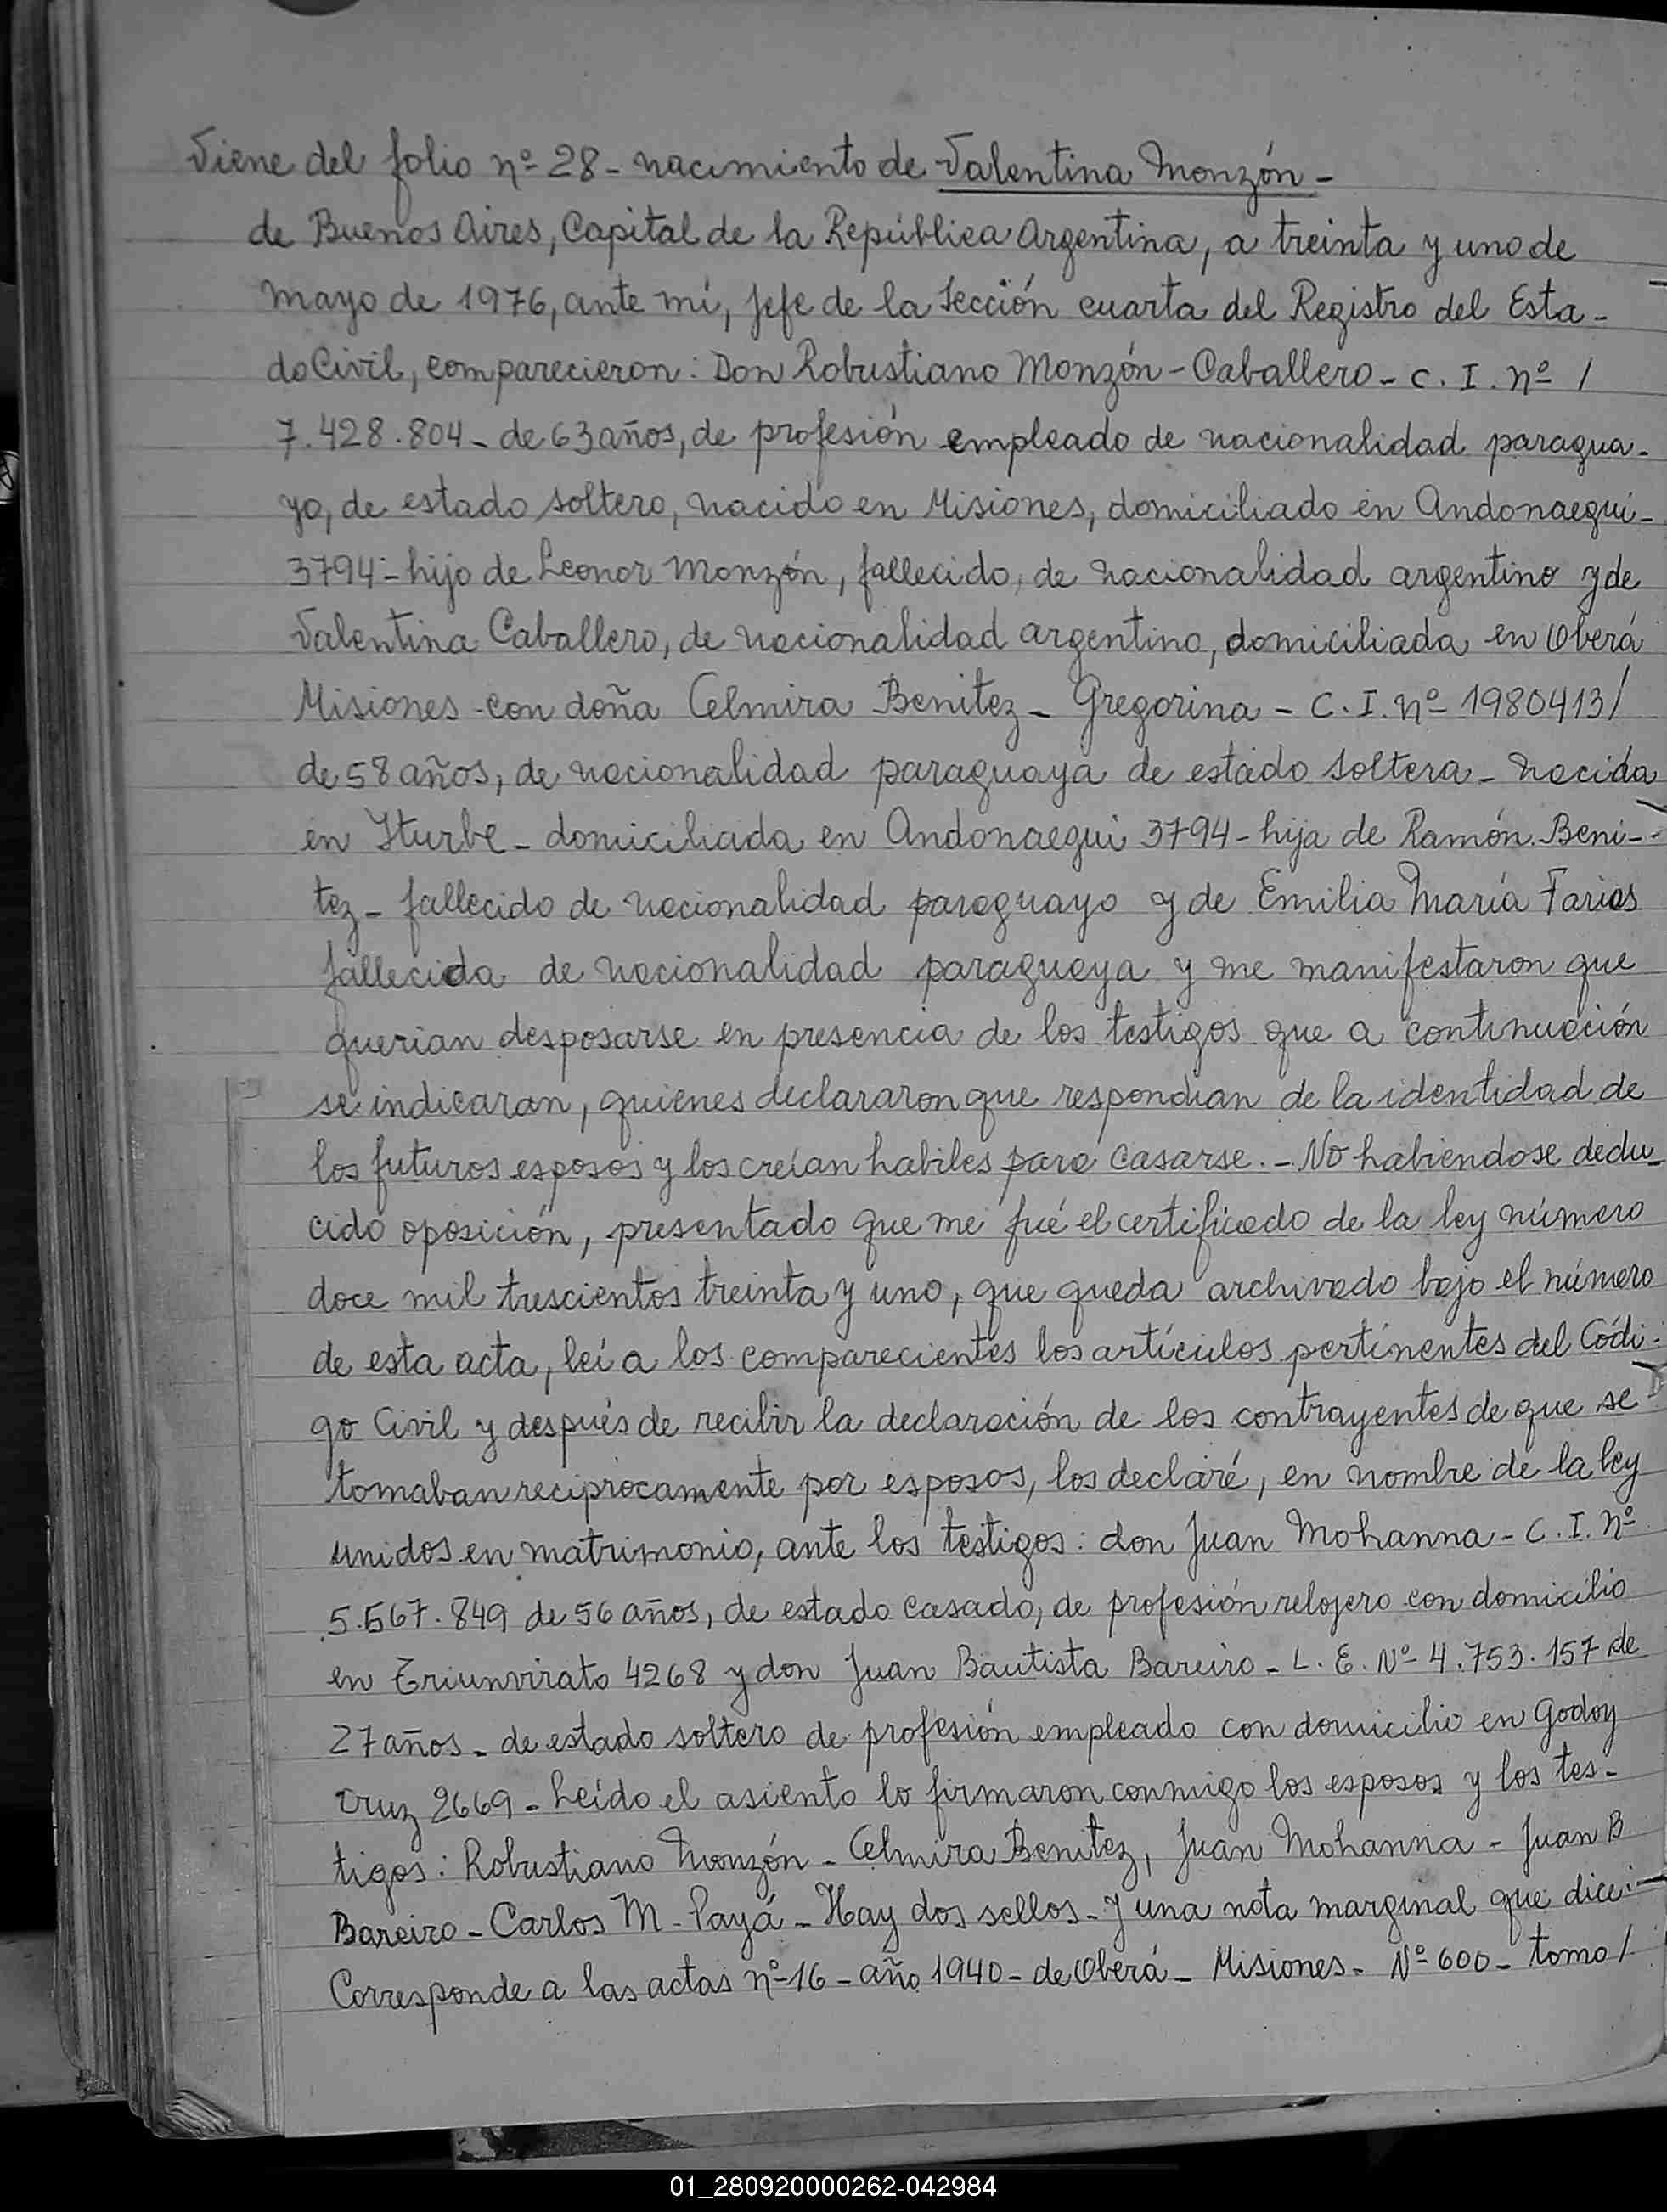 Viene del folio nº 28 - nacimiento de Valentina Monzón -
de Buenos Aires, Capital de la República Argentina, a treinta y uno de
Mayo de 1976, ante mí, Jefe de la Sección cuarta del Registro del Esta-
do Civil, comparecieron: Don Robustiano Monzón - Caballero - C. I. nº /
7.428.804 - de 63 años, de profesión empleado de nacionalidad paragua-
yo, de estado soltero, nacido en Misiones, domiciliado en Andonaegui -
3794 - hijo de Leonor Monzón, fallecido, de nacionalidad argentino y de
Valentina Caballero, de nacionalidad argentina, domiciliada en Oberá
Misiones - con doña Celmira Benitez - Gregorina - C. I. nº 1980413 /
de 58 años, de nacionalidad paraguaya de estado soltera - nacida
en Yturbe - domiciliada en Andonaegui 3794 - hija de Ramón Beni-
tez - fallecido de nacionalidad paraguayo y de Emilia María Farias
fallecida de nacionalidad paraguaya y me manifestaron que
querian desposarse en presencia de los testigos que a continuación
se indicaran, quienes declararon que respondian de la identidad de
los futuros esposos y los creían habiles para casarse. - No habiendose dedu-
cido oposición, presentado que me fué el certificado de la ley número
doce mil trescientos treinta y uno, que queda archivado bajo el número
de esta acta, leí a los comparecientes los artículos pertinentes del Códi-
go Civil y después de recibir la declaración de los contrayentes de que se
tomaban reciprocamente por esposos, los declaré, en nombre de la ley
unidos en matrimonio, ante los testigos: don Juan Mohanna - C. I. nº
5.567.849 de 56 años, de estado casado, de profesión relojero con domicilio
en Triunvirato 4268 y don Juan Bautista Bareiro - L. E. Nº 4.753.157 de
27 años - de estado soltero de profesión empleado con domicilio en Godoy
Cruz 2669 - Leído el asiento lo firmaron conmigo los esposos y los tes-
tigos: Robustiano Monzón - Celmira Benitez, Juan Mohanna - Juan B
Bareiro - Carlos M - Payá - Hay dos sellos - y una nota marginal que dice: -
Corresponde a las actas nº 16 - año 1940 - de Oberá - Misiones - Nº 600 - tomo /
01_280920000262-042984